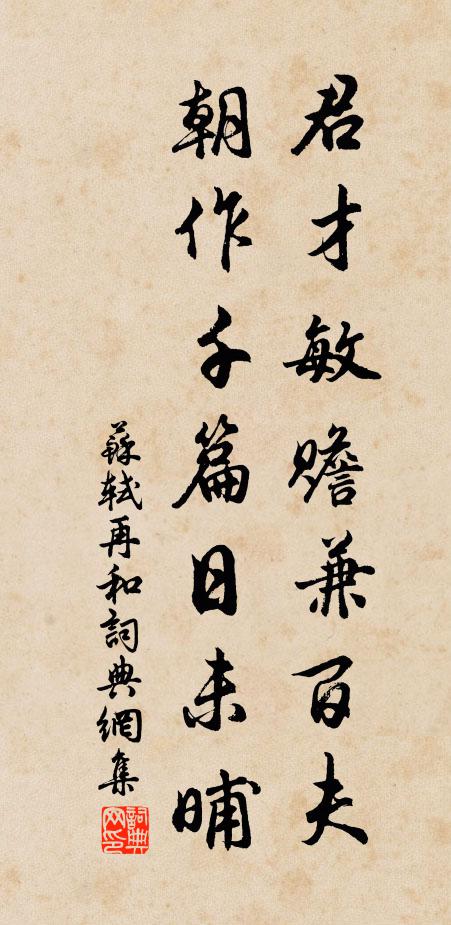 君才敏贍兼百夫
朝作千篇日未晡
蘇軾再和詞典網集
詞典网印